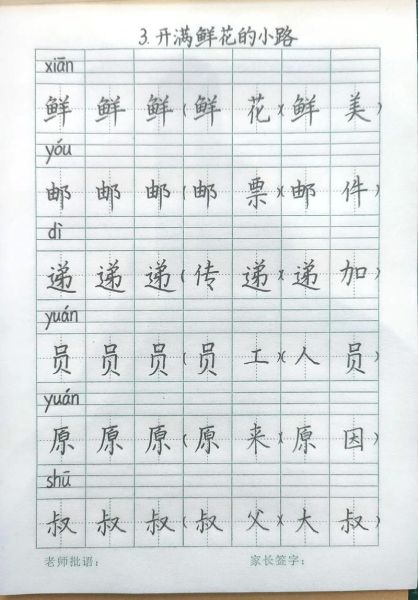 3.开满鲜花的小路
xiān
鲜 鲜 鲜(鲜 花)(鲜 美)
yóu
邮 邮 邮(邮 票)(邮 件)
dì
递 递 递(传 递)(递 加)
yuán
员 员 员(员 工)(人 员)
yuán
原 原 原(原 来)(原 因)
shū
叔 叔 叔(叔 父)(大 叔)
老师批语: 家长签字: